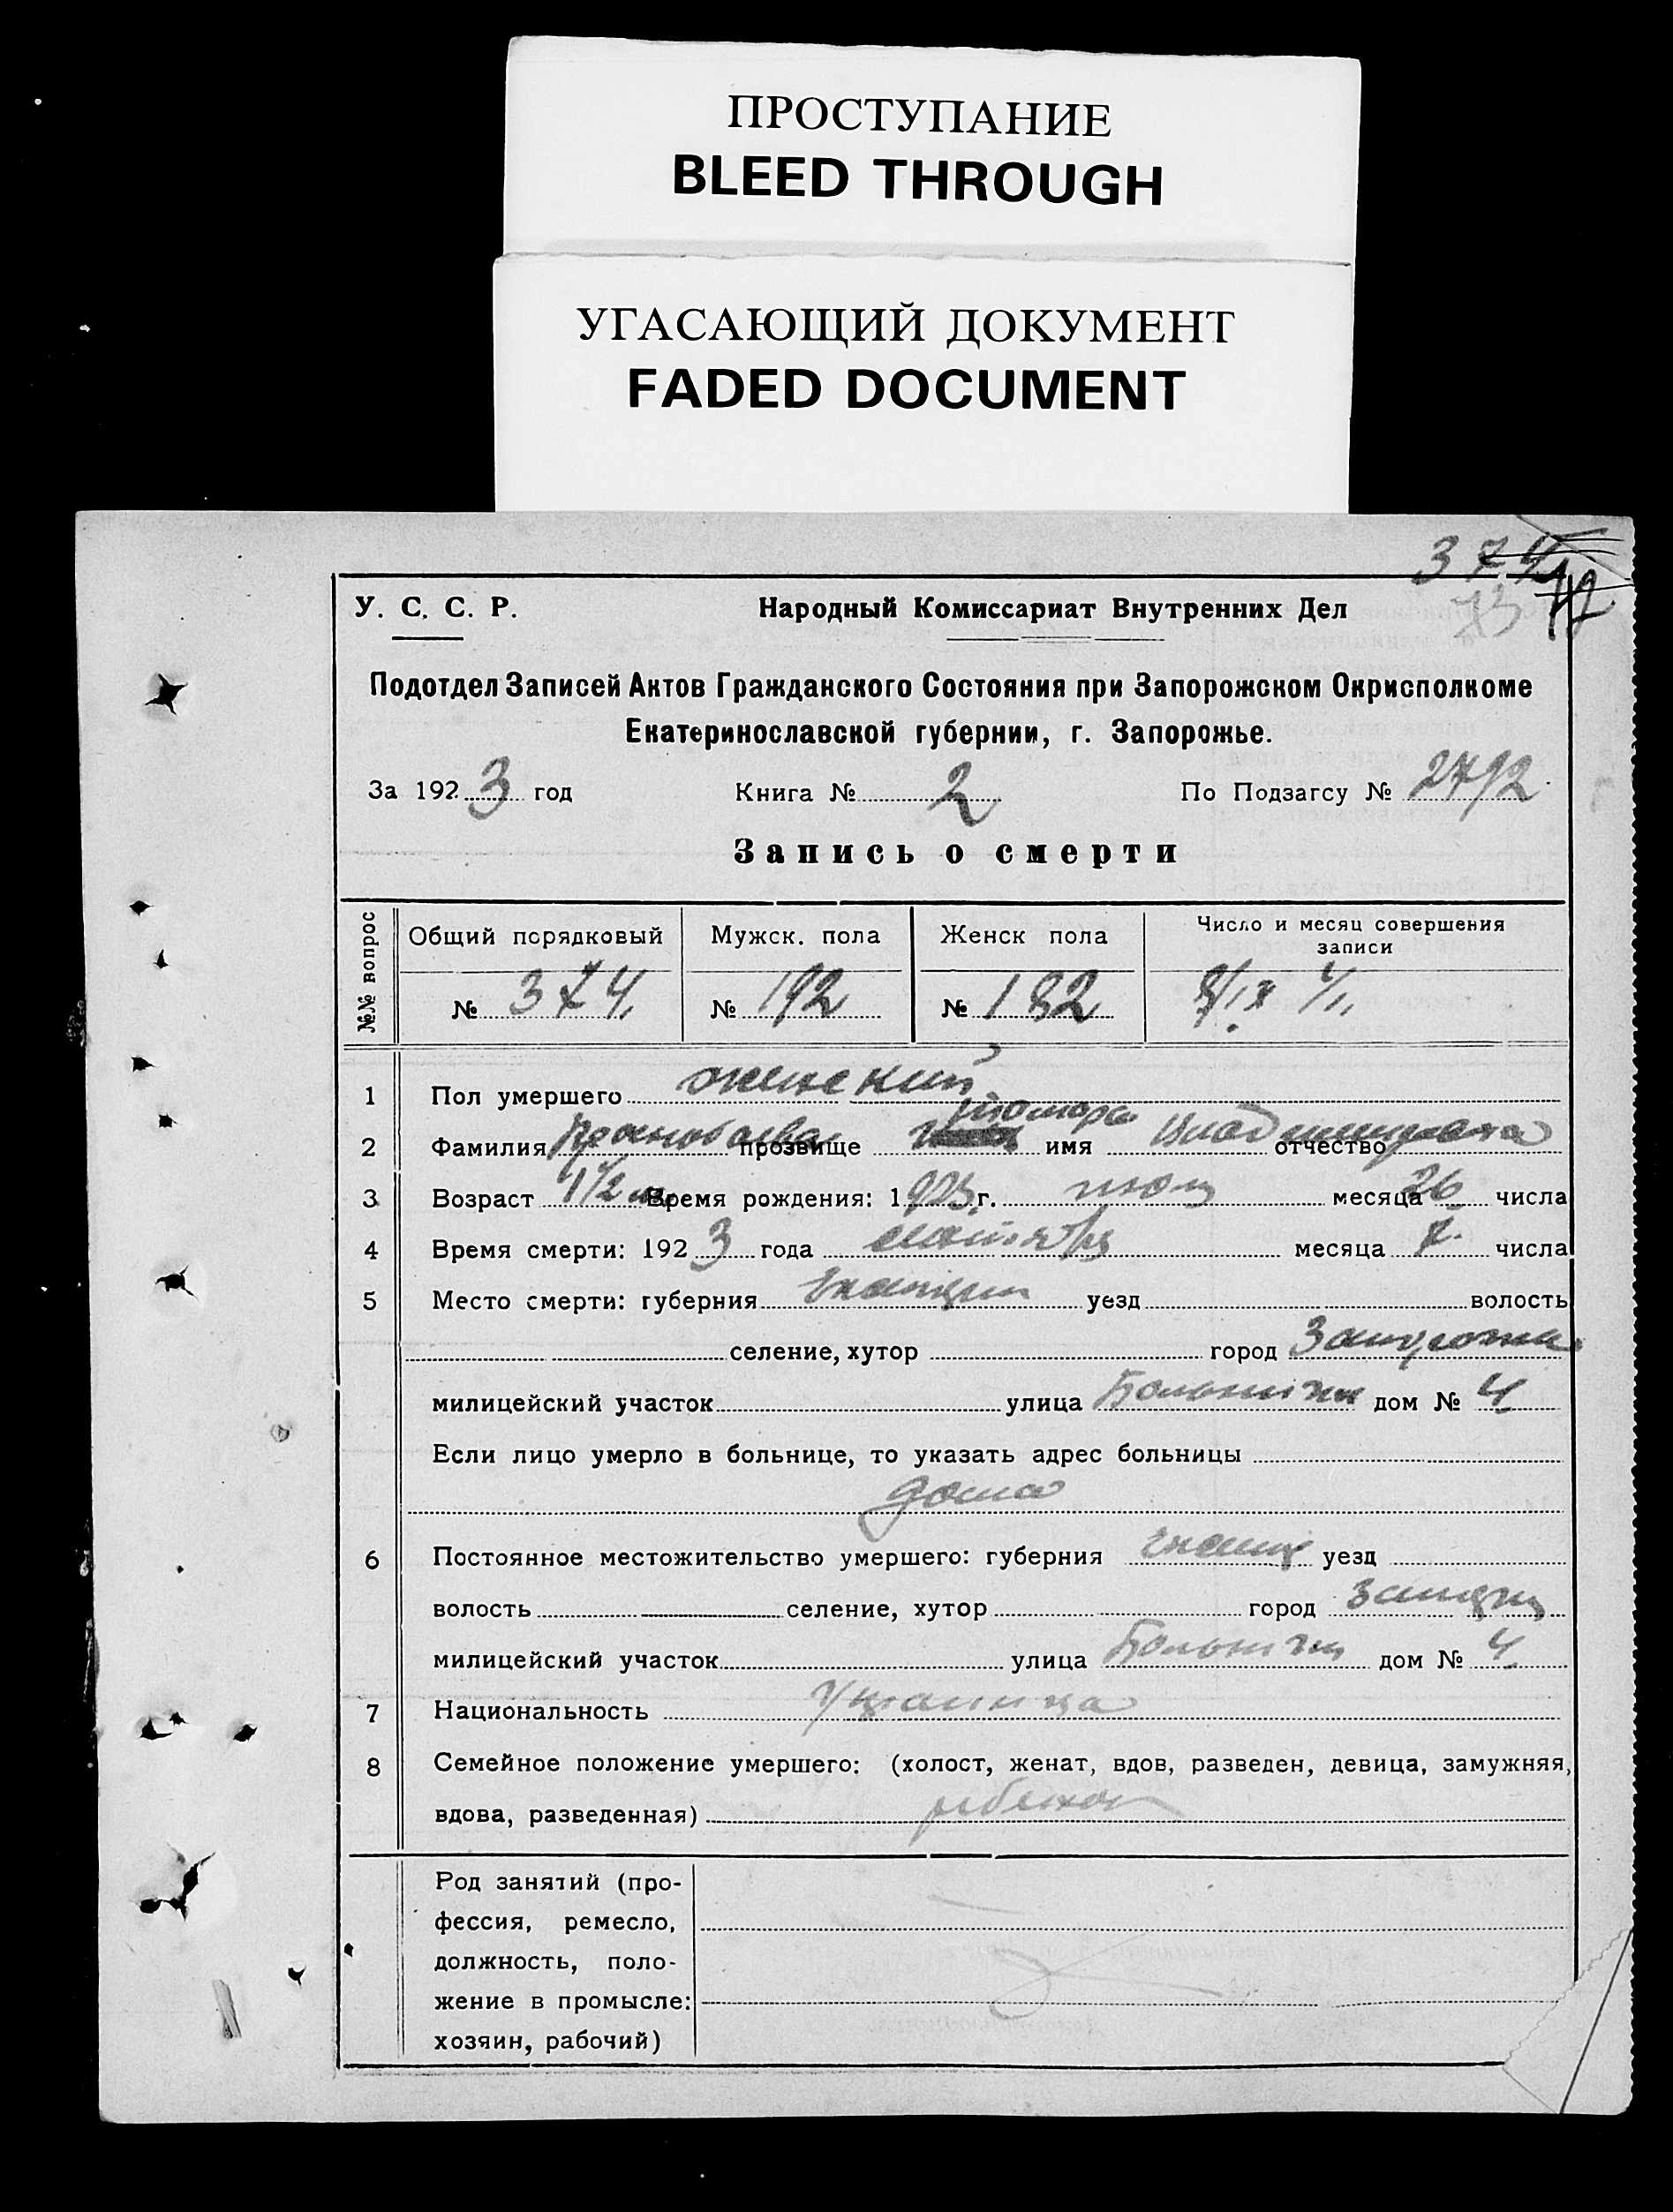 ПРОСТУПАНИЕ
BLEED THROUGH
УГАСАЮЩИЙ ДОКУМЕНТ
FADED DOCUMENT
374
У. С. С. Р. Народный Комиссариат Внутренних Дел
Подотдел Записей Актов Гражданского Состояния при Запорожском Окрисполкоме
Екатеринославской губернии, г. Запорожье.
За 1923 год Книга № 2 По Подзагсу №
Запись о смерти
№№ вопрос Общий порядковый Мужск. пола Женск пола Число и месяц совершения записи
№ 374 № 192 № 182
1 Пол умершего женский
2 Фамилия прозвище имя отчество
3 Возраст 1 1/2 м. Время рождения: 1923 г. месяца 26 числа
4 Время смерти: 1923 года месяца 7 числа
5 Место смерти: губерния уезд волость
селение, хутор город
милицейский участок улица дом № 4
Если лицо умерло в больнице, то указать адрес больницы
дома
6 Постоянное местожительство умершего: губерния уезд
волость селение, хутор город
милицейский участок улица дом № 4
7 Национальность
8 Семейное положение умершего: (холост, женат, вдов, разведен, девица, замужняя,
вдова, разведенная) ребенок
Род занятий (про-
фессия, ремесло,
должность, поло-
жение в промысле:
хозяин, рабочий)